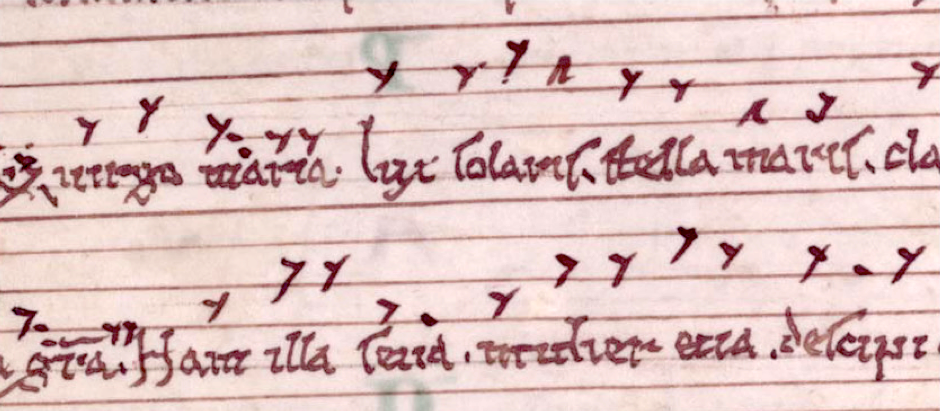 uirgo maria. lux solaris. stella maris. cla
gr̄a. Nam illa seua. mulier eua. decipi